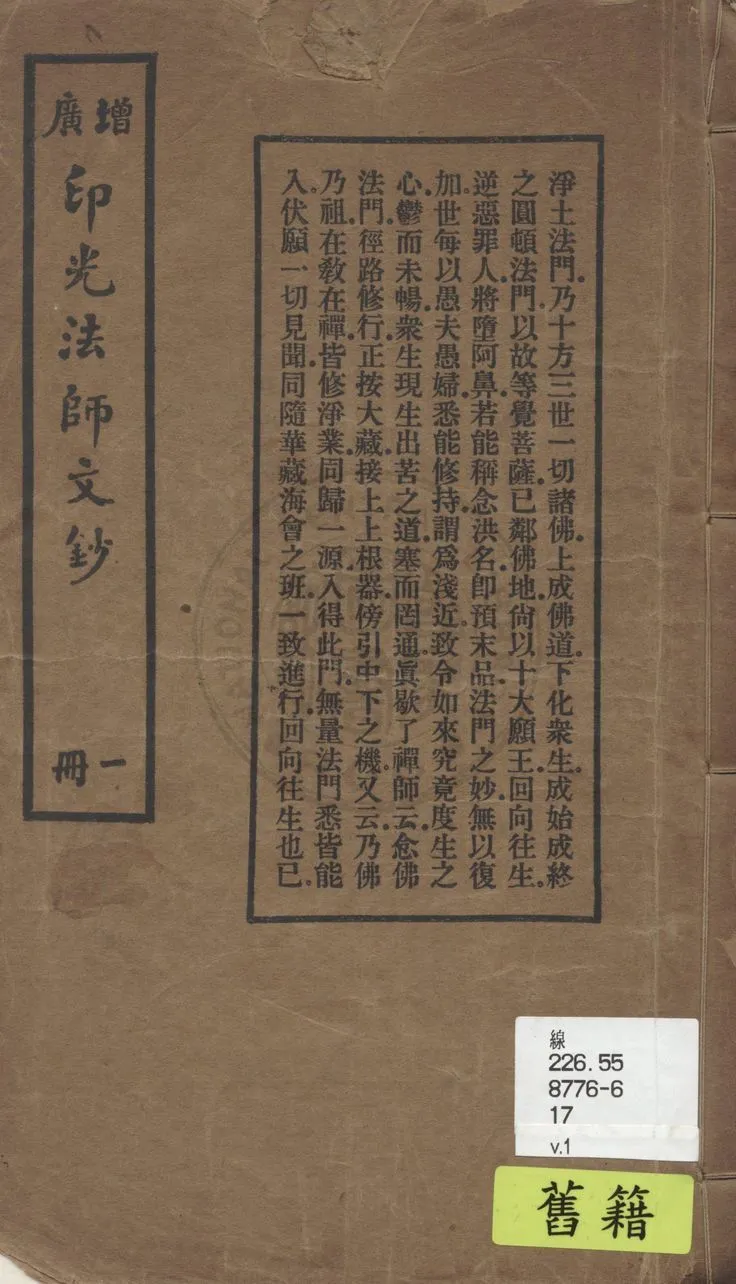 增廣
印光法師文鈔
一冊
淨土法門。乃十方三世一切諸佛。上成佛道。下化衆生。成始成終
之圓頓法門。以故等覺菩薩。已鄰佛地。尙以十大願王。回向往生。
逆惡罪人。將墮阿鼻。若能稱念洪名。卽預末品。法門之妙。無以復
加。世每以愚夫愚婦。悉能修持。謂爲淺近。致令如來究竟度生之
心。鬱而未暢。衆生現生出苦之道。塞而罔通。眞歇了禪師云。念佛
法門。徑路修行。正按大藏。接上上根器。傍引中下之機。又云。乃佛
乃祖。在敎在禪。皆修淨業。同歸一源。入得此門。無量法門。悉皆能
入。伏願一切見聞。同隨華藏海會之班。一致進行。回向往生也已。
線
226.55
8776-6
17
v.1
舊籍